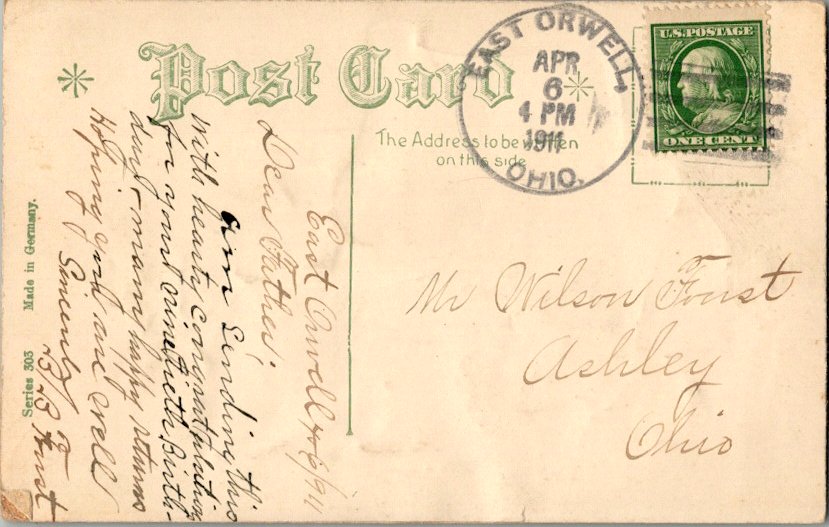 Post Card
EAST ORWELL,
APR
6
4 PM
1911
OHIO.
U.S. POSTAGE
ONE CENT
The Address to be written
on this side
Mr Wilson Foust
Ashley
Ohio
East Orwell 6/911
Dear Father;
Am Sending this
with hearty congratulations
for your ninetieth Birth-
day - many happy returns
Hoping you are well
Sincerely
Foust
Series 303 Made in Germany.